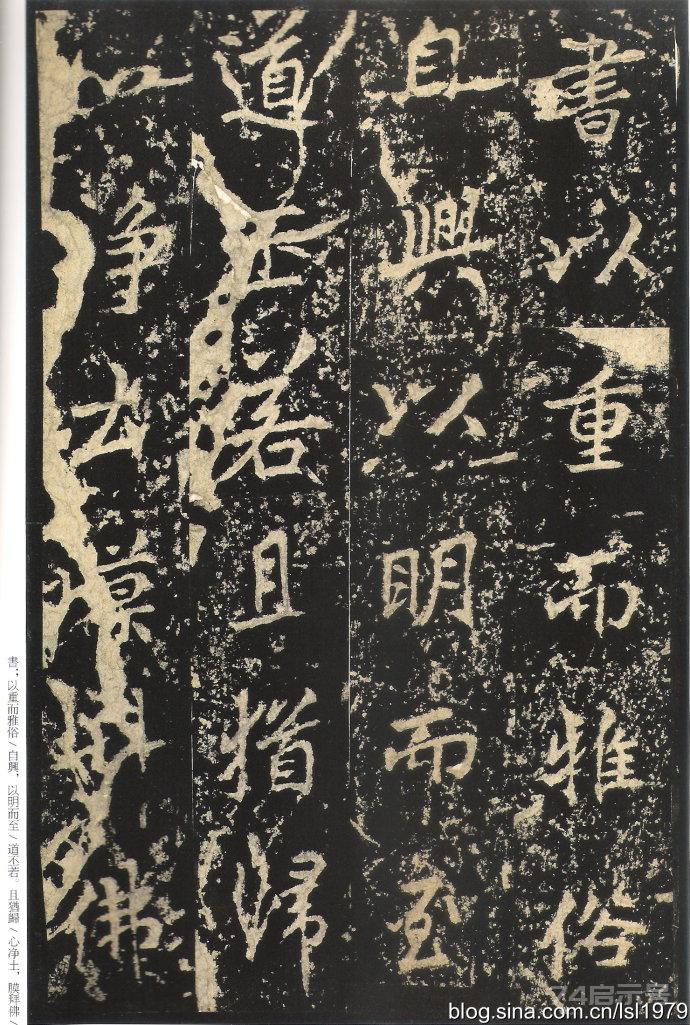 書以重而雅俗
自興以明而至
道丕若且猶歸
心净土膜拜佛
書；以重而雅俗/自興，以明而至/道丕若。且猶歸/心净土，膜拜佛/
blog.sina.com.cn/lsl1979